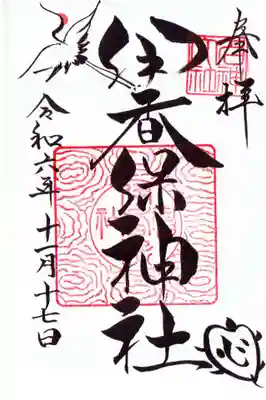 奉拝
伊香保神社
心
令和六年十一月十七日